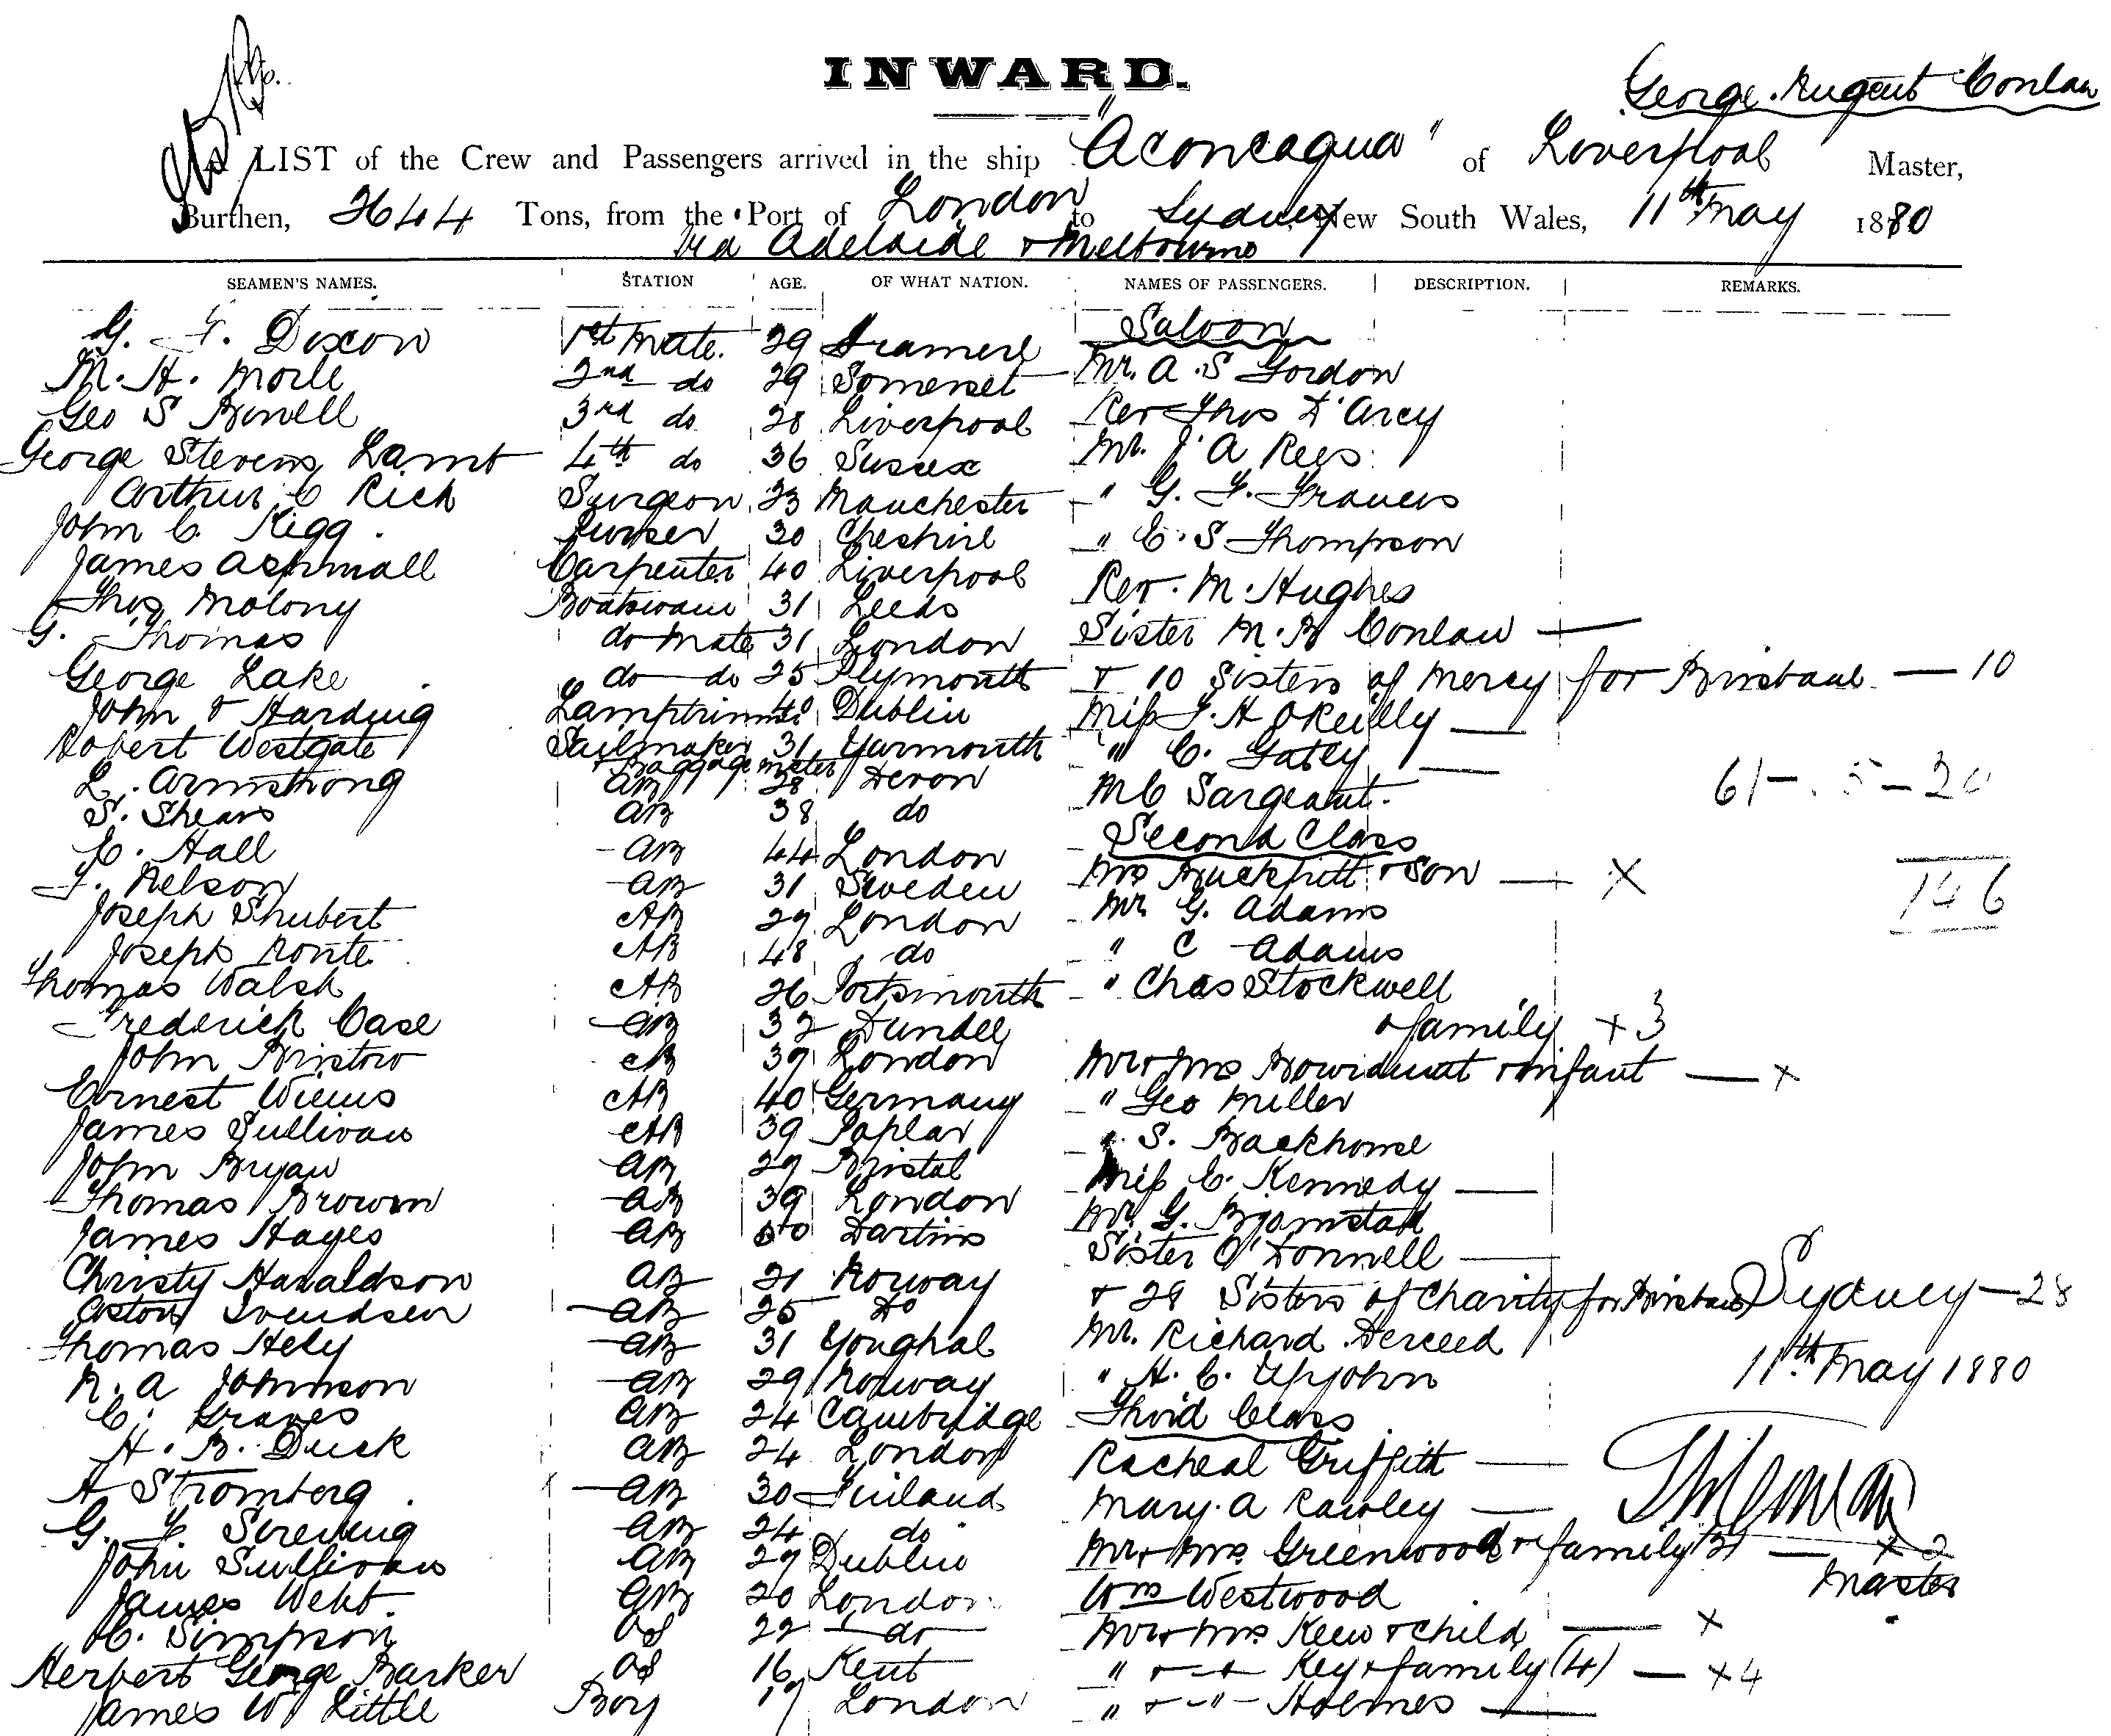 INWARD.
George Nugent Conlan
A LIST of the Crew and Passengers arrived in the ship "Aconcagua" of Liverpool Master,
Burthen, 2644 Tons, from the Port of London to Sydney, New South Wales, 11th May 1880
Via Adelaide & Melbourne
SEAMEN'S NAMES. STATION AGE. OF WHAT NATION. NAMES OF PASSENGERS. DESCRIPTION. REMARKS.
G. F. Dixon 1st Mate. 29 Saloon
M. H. Morle 2nd do 29 Somerset Mr. A. S Gordon
Geo S Bowell 3rd do 28 Liverpool Rev Thos D'Arcy
George Stevens Lamb 4th do 36 Sussex Mr. J A Rees
Arthur C Rich Surgeon 23 Manchester " G. F. Francis
John C. Rigg Purser 30 Cheshire " E. S Thompson
James Aspinall Carpenter 40 Liverpool Rev. M. Hughes
Thos Molony Boatswain 31 Leeds
G. Thomas do Mate 31 London Sister M. B Conlan —
George Lake do do 25 Plymouth & 10 Sisters of Mercy for Brisbane — 10
John Harding Lamptrimmer 40 Dublin Miss J. H OReilly —
Robert Westgate Sailmaker 31 Yarmouth " C. Gatey —
& Baggage
L. Armstrong AB 28 Devon Mr C Sargeant. 61 - 5 - 20
S. Shears AB 38 do
E. Hall AB 44 London Second Class
F. Nelson AB 31 Sweden Mrs Buckpitt & Son — X 146
Joseph Shubert AB 29 London Mr G. Adams
Joseph Ronte AB 48 do " C Adams
Thomas Walsh AB 26 Portsmouth " Chas Stockwell
Frederick Case AB 32 Dundee & family x 3
John Bristow AB 39 London Mr & Mrs & infant — x
Ernest AB 40 Germany " Geo Miller
James Sullivan AB 39 Poplar " S. Backhouse
John Bryan AB 29 Bristol Miss C. Kennedy —
Thomas Brown AB 39 London Mr. G. Bjornstad
James Hayes AB 50 Sister O'Donnell —
Christy Haraldson AB 21 Norway & 28 Sisters of Charity for Brisbane Sydney — 28
Svendsen AB 25 Do
Thomas Hely AB 31 Youghal Mr. Richard
N. A Johnson AB 29 Norway " H. C. Upjohn 11th May 1880
C. Graves AB 24 Cambridge Third Class
H. B. Duck AB 24 London Racheal Griffith —
A Stromberg AB 30 Finland Mary. A Rawley —
G. F AB 24 do Mr & Mrs Greenwood & family (3) — x 2
John Sullivan AB 29 Dublin Master
James Webb AB 20 London Wm Westwood
C. Simpson OS 22 do Mr & Mrs Keen & child — x
Herbert George Barker OS 16 Kent " & — " Key & family (4) — x 4
James W Little Boy 17 London " & — " — Holmes —